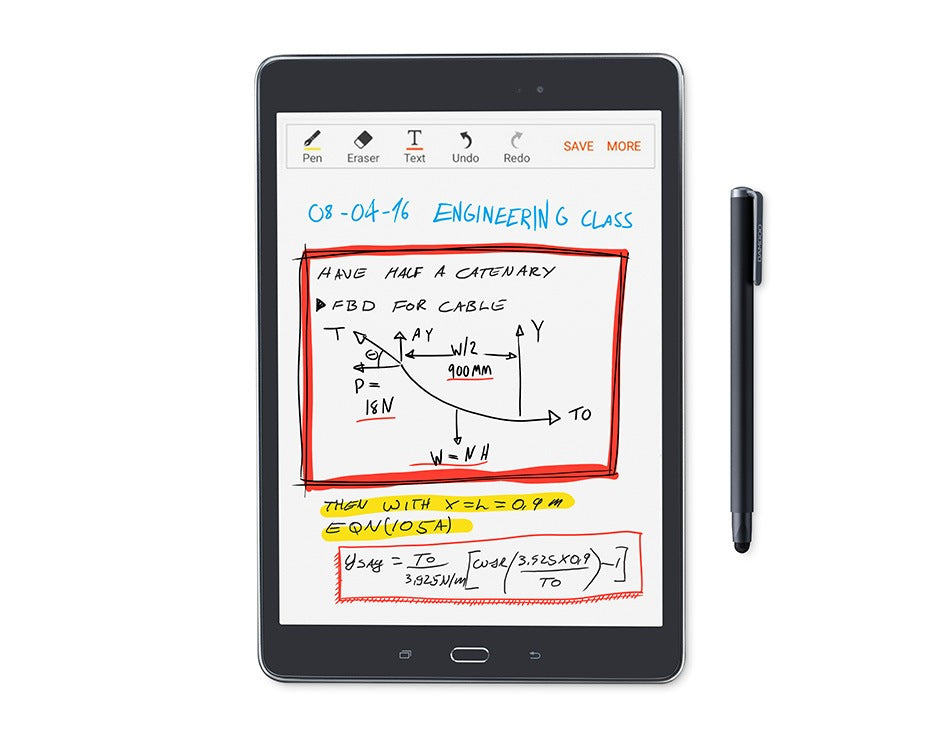 Pen Eraser Text Undo Redo SAVE MORE
08-04-16 ENGINEERING CLASS
HAVE HALF A CATENARY
FBD FOR CABLE
T AY Y
Θ W/2
900MM
P =
18N
TO
W = N H
THEN WITH X=L=0,9 m
EQN(105A)
ysag = TO / 3,925N/m [cosh (3.925X0,9 / TO) -1]